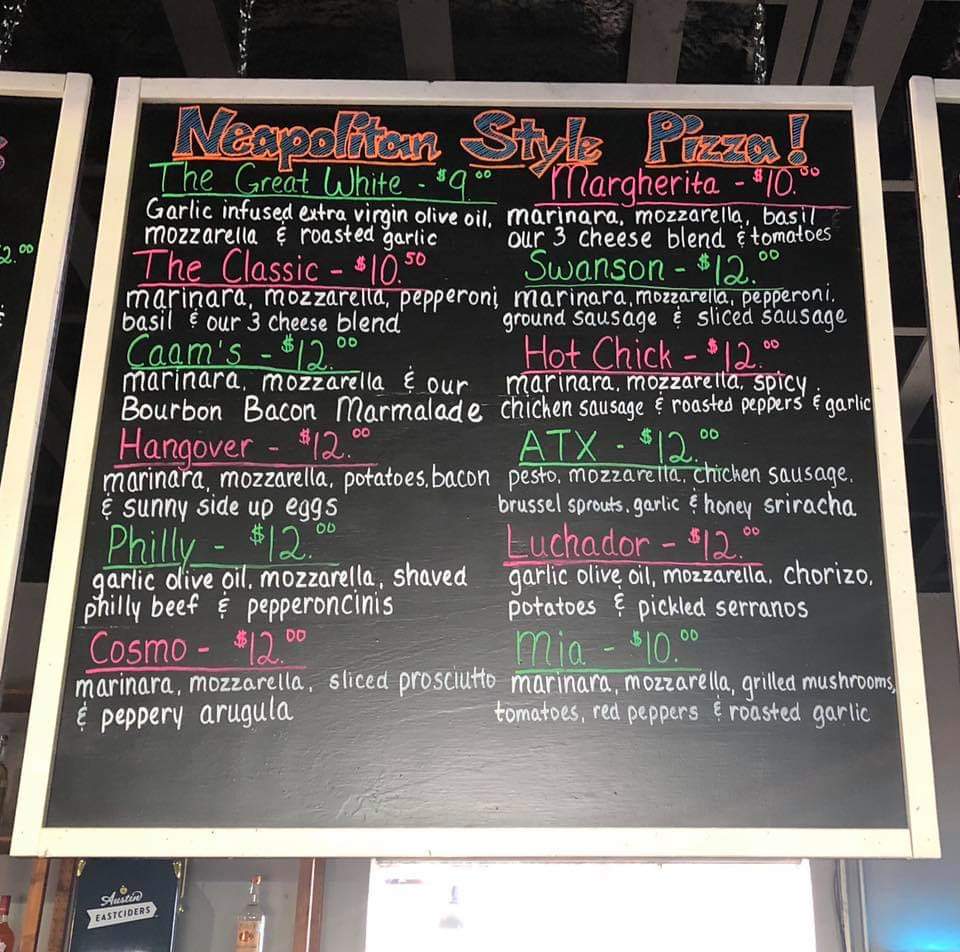 Neapolitan Style Pizza!
The Great White - $9.00
Garlic infused extra virgin olive oil,
mozzarella & roasted garlic
The Classic - $10.50
marinara, mozzarella, pepperoni,
basil & our 3 cheese blend
Caam's - $12.00
marinara, mozzarella & our
Bourbon Bacon Marmalade
Hangover - $12.00
marinara, mozzarella, potatoes, bacon
& sunny side up eggs
Philly - $12.00
garlic olive oil, mozzarella, shaved
philly beef & pepperoncinis
Cosmo - $12.00
marinara, mozzarella, sliced prosciutto
& peppery arugula
Margherita - $10.00
marinara, mozzarella, basil
our 3 cheese blend & tomatoes
Swanson - $12.00
marinara, mozzarella, pepperoni,
ground sausage & sliced sausage
Hot Chick - $12.00
marinara, mozzarella, spicy
chicken sausage & roasted peppers & garlic
ATX - $12.00
pesto, mozzarella, chicken sausage,
brussel sprouts, garlic & honey sriracha
Luchador - $12.00
garlic olive oil, mozzarella, chorizo,
potatoes & pickled serranos
Mia - $10.00
marinara, mozzarella, grilled mushrooms,
tomatoes, red peppers & roasted garlic
2.00
Austin
EASTCIDERS